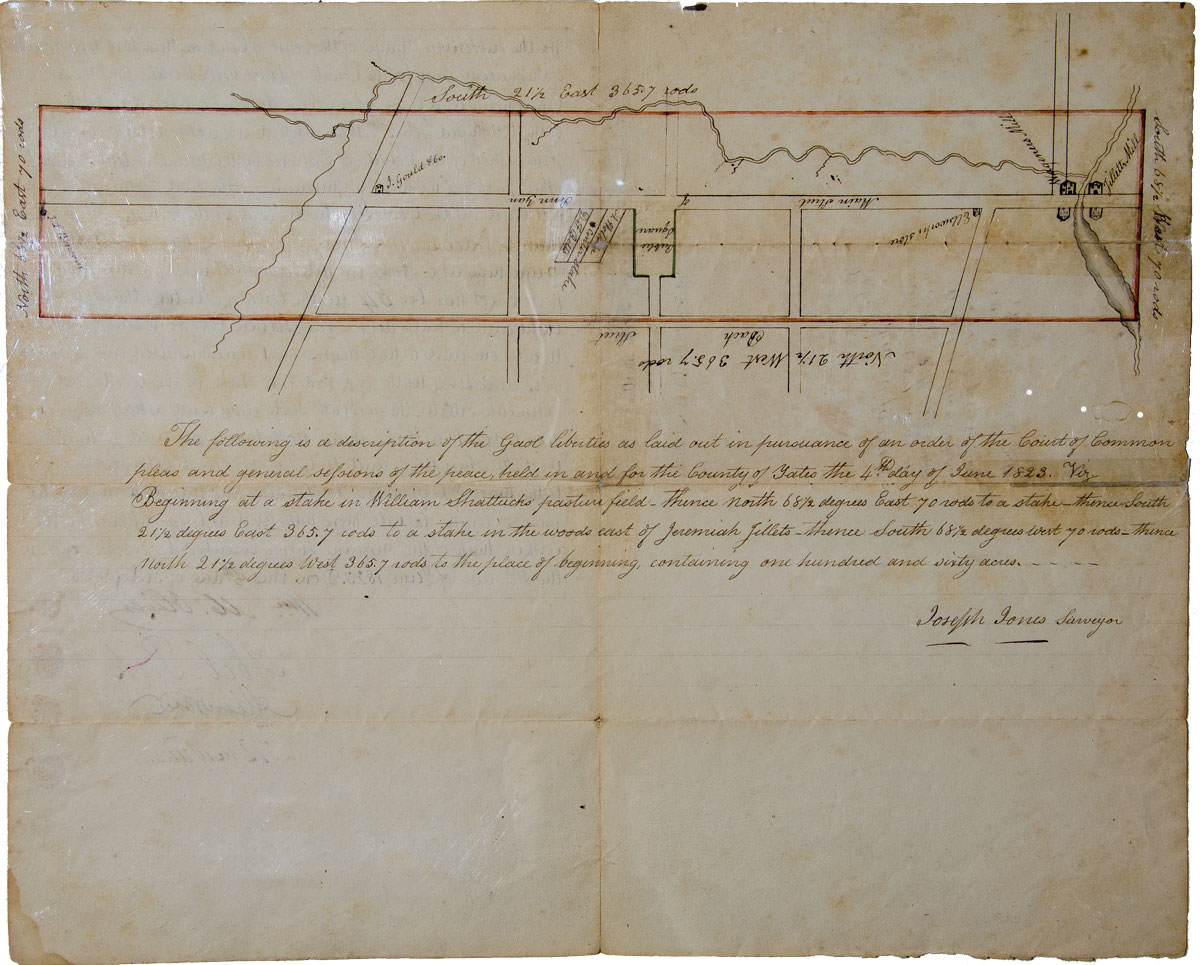 South 21½ East 365.7 rods
North 68½ East 70 rods
South 68½ West 70 rods
Waggeners Mill
Jilletts Mill
J. Gould & Co.
Main Street
of
Penn Yan
Ellsworths Store
Public
Square
Center Stake
Back
Street
North 21½ West 365.7 rods
The following is a description of the Gaol liberties as laid out in pursuance of an order of the Court of Common
pleas and general sessions of the peace, held in and for the County of Yates the 4th day of June 1823. Viz
Beginning at a stake in William Shattucks pasture field - thence North 68½ degrees East 70 rods to a stake - thence South
21½ degrees East 365.7 rods to a stake in the woods east of Jeremiah Jillets - thence South 68½ degrees west 70 rods - thence
North 21½ degrees West 365.7 rods to the place of beginning, containing one hundred and sixty acres. - - - -
Joseph Jones Surveyor